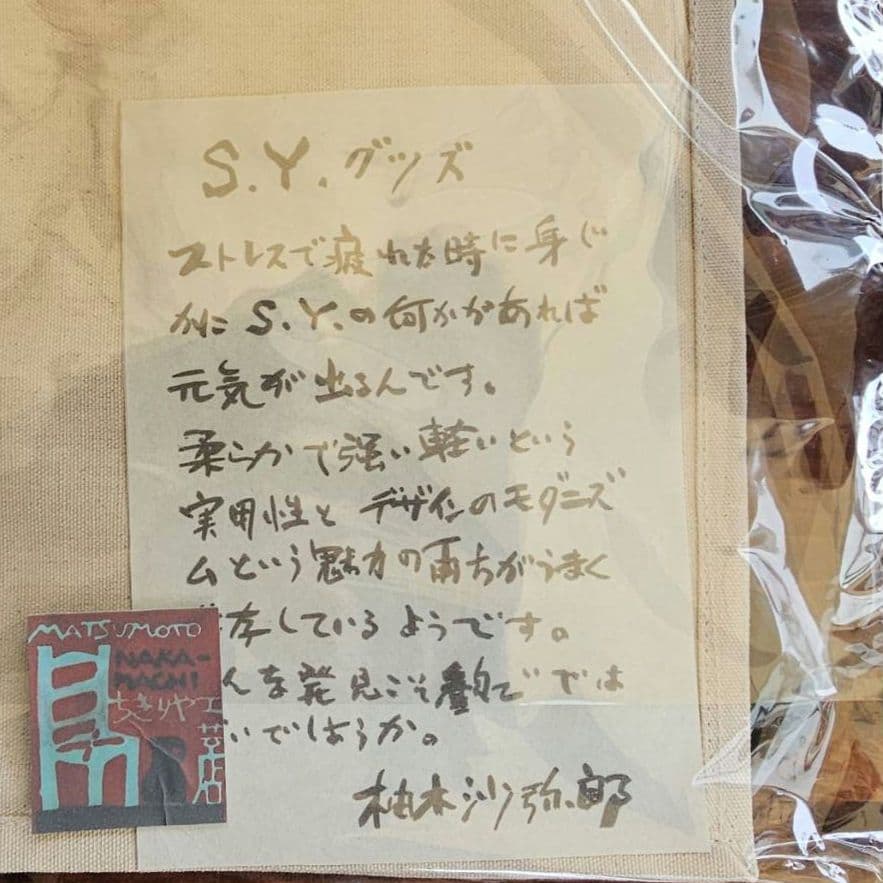 S.Y.グッズ
ストレスで疲れた時に身ぢ
かに S.Y.の何かがあれば
元気が出るんです。
柔らかで強い軽いという
実用性と デザインのモダニズ
ムという魅力の両方がうまく
存しているようです。
んな発見こそ では
いでしょうか。
柚木沙弥郎
MATSUMOTO
NAKA-
MACHI
ちきりや工
芸店